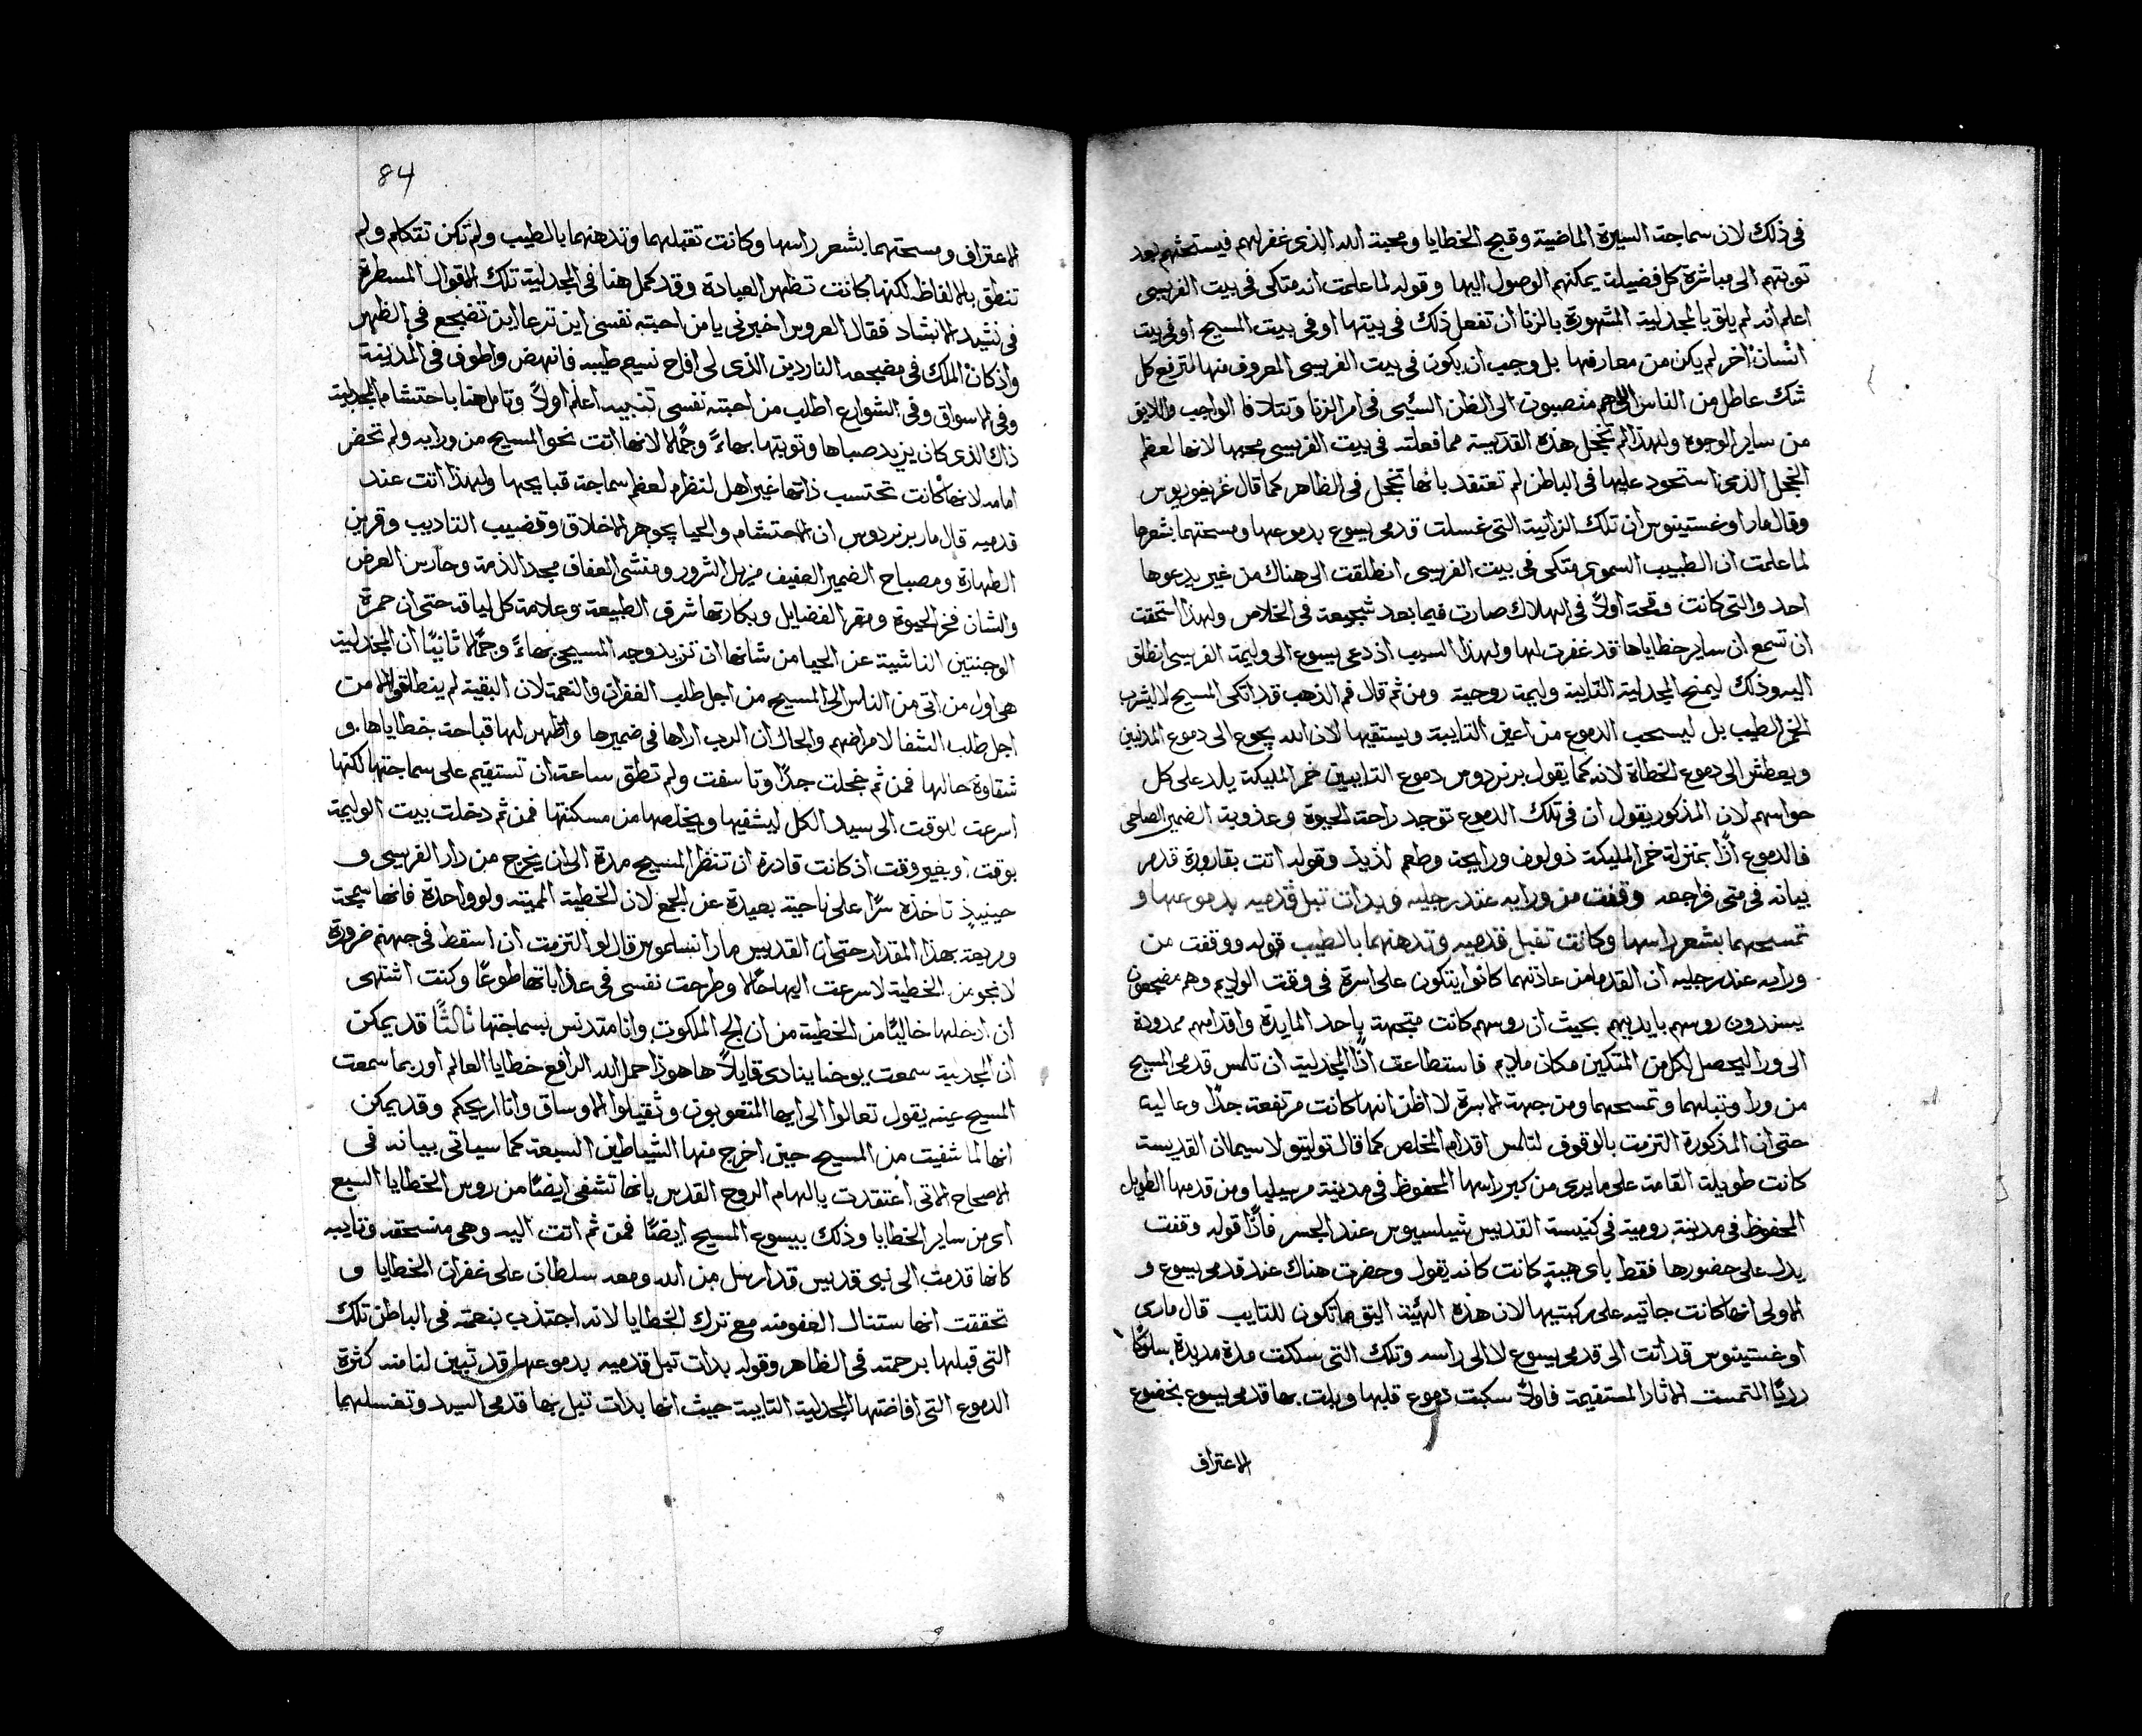 فى ذلك لان سماجة السيرة الماضية وقبح الخطايا ومحبة الله الذى غفر لهم فيستحثهم بعد
توبتهم الى مباشرة كل فضيلة يمكنهم الوصول اليها وقوله لما علمت انه متكى فى بيت الفريسى
اعلم انه لم يلق بالمجدلية المشهورة بالزنا ان تفعل ذلك فى بيتها او فى بيت المسيح او فى بيت
انسان اخر لم يكن من معارفها بل وجب ان يكون فى بيت الفريسى المعروف منها لترفع كل
شك عاطل من الناس الذى هم منصبون الى الظن السيى فى امر الزنا وتتلافا الواجب واللايق
من ساير الوجوه ولهذا لم تخجل هذه القديسة مما فعلته فى بيت الفريسى محبها لانها لعظم
الخجل الذى استحود عليها فى الباطن لم تعتقد بانها تخجل فى الظاهر كما قال غريغوريوس
وقال مار اوغستينوس ان تلك الزانية التى غسلت قدمى يسوع بدموعها ومسحتهما بشعرها
لما علمت ان الطبيب السموى متكى فى بيت الفريسى انطلقت الى هناك من غير يدعوها
احد والتى كانت وقحة اولاً فى الهلاك صارت فيما بعد شجيعة فى الخلاص ولهذا استحقت
ان تسمع ان ساير خطاياها قد غفرت لها ولهذا السبب اذ دعى يسوع الى وليمة الفريسى انطلق
اليه وذلك ليمنح المجدلية التايبة وليمة روحية ومن ثم قال فم الذهب قد اتكى المسيح لا ليشرب
الخمر الطيب بل ليسحب الدموع من اعين التايبة ويستقيها لان الله يجوع الى دموع المذنبين
ويعطش الى دموع الخطاة لانه كما يقول برنردوس دموع التايبين خمر المليكة يلد على كل
حواسهم لان المذكور يقول ان فى تلك الدموع توجد راحة الحيوة وعذوبة الضمير الصاحى
فالدموع اذًا بمنزلة خمر المليكة ذو لون ورايحة وطعم لذيذ وقوله اتت بقارورة قدمر
بيانه فى متى فراجعه وقفت من ورايه عند رجليه وبدات تبل قدميه بدموعها و
تمسحهما بشعر راسها وكانت تقبل قدميه وتدهنهما بالطيب قوله ووقفت من
ورايه عند رجليه ان القدما من عادتهما كانوا يتكون على اسرة فى وقت الولايم وهم مضجعون
يسندون روسهم بايديهم بحيث ان روسهم كانت متجهة باحد المايدة واقدامهم ممدودة
الى ورا ليحصل لكل من المتكين مكان ملايم فاستطاعت اذًا المجدلية ان تلمس قدمى المسيح
من ورا وتبلهما وتمسحهما ومن جهة الاسرة لا اظن انها كانت مرتفعة جدًا وعالية
حتى ان المذكورة التزمت بالوقوف لتلمس اقدام المخلص كما قال توليتو لا سيما ان القديسة
كانت طويلة القامة على ما يرى من كبر راسها المحفوظ فى مدينة مرسيليا ومن قدمها الطويل
المحفوظ فى مدينة رومية فى كنيسة القديس شيلسيوس عند الجسر فاذًا قوله وقفت
يدل على حضورها فقط باى هيبة كانت كانه يقول وحضرت هناك عند قدمى يسوع و
الاولى انها كانت جاتيه على ركبتيها لان هذه الهيئة اليق ما تكون للتايب قال مارى
اوغستينوس قد اتت الى قدمى يسوع لا الى راسه وتلك التى سلكت مدة مديدة سلوكًا
رديًا التمست الاثار المستقيمة فاولاً سكبت دموع قلبها وبلت بها قدمى يسوع بخضوع
الاعتراف
84
الاعتراف ومسحتهما بشعر راسها وكانت تقبلهما وتدهنهما بالطيب ولم تكن تتكلم ولم
تنطق بالالفاظ لكنها كانت تظهر العبادة وقد كمل هنا فى المجدلية تلك الاقوال المسطرة
فى نشيد الانشاد فقال العروس اخبرنى يا من احبته نفسى اين ترعا اين تضجع فى الظهر
واذ كان الملك فى مضجعه الناردين الذى لى افاح نسيم طيبه فانهض واطوف فى المدينة
وفى الاسواق وفى الشوارع اطلب من احبته نفسى تنبيه اعلم اولاً وتامل هنا باحتشام المجدلية
ذاك الذى كان يزيد صباها وتوبتها بهاءً وجمالا لانها اتت نحو المسيح من ورايه ولم تحضر
امامه لانها كانت تحتسب ذاتها غير اهل لنظره لعظم سماجة قبايحها ولهذا اتت عند
قدميه قال مار برنردوس ان الاحتشام والحيا يجوهر الاخلاق وقضيب التاديب وقرين
الطهارة ومصباح الضمير العفيف مزيل الشرور ومنشى العفاف مجد الذمة وحارس العرض
والشان فخر الحيوة ومقر الفضايل وبكارتها شرف الطبيعة وعلامة كل لياقة حتى ان حمرة
الوجنتين الناشية عن الحيا من شانها ان تزيد وجه المسيحى بهاءً وجمالا ثانيًا ان المجدلية
هى اول من اتى من الناس الى المسيح من اجل طلب الغفران والنعمة لان البقية لم ينطلقوا الا من
اجل طلب الشفا لامراضهم والحال ان الرب اراها فى ضميرها واظهر لها قباحة خطاياها و
شقاوة حالها فمن ثم خجلت جدًا وتاسفت ولم تطق ساعة ان تستقيم على سماجتها لكنها
اسرعت للوقت الى سيد الكل ليشفيها ويخلصها من مسكنتها فمن ثم دخلت بيت الوليمة
بوقت او بغير وقت اذ كانت قادرة ان تنتظر المسيح مدة الى ان يخرج من دار الفريسى و
حينيذٍ تاخذه سرًا على ناحية بعيدة عن الجمع لان الخطية المميتة ولو واحدة فانها سمجة
ومريعة بهذا المقدار حتى ان القديس مار انسلموس قال لو التزمت ان اسقط فى جهنم ضرورة
لانجو من الخطية لاسرعت اليها حالا وطرحت نفسى فى عذاباتها طوعًا وكنت اشتهى
ان ادخلها خاليًا من الخطية من ان الج الملكوت وانا متدنس بسماجتها ثالثًا قد يمكن
ان المجدلية سمعت يوحنا ينادى قايلاً ها هوذا حمل الله الرافع خطايا العالم او ربما سمعت
المسيح عينه يقول تعالوا الى ايها المتعوبون وثقيلوا الاوساق وانا اريحكم وقد يمكن
انها لما شفيت من المسيح حين اخرج منها الشياطين السبعة كما سياتى بيانه فى
الاصحاح الاتى اعتقدت بالهام الروح القدس بانها تشفى ايضًا من روس الخطايا السبع
اى من ساير الخطايا وذلك بيسوع المسيح ايضًا فمن ثم اتت اليه وهى منسحقه وتايبه
كانها قدمت الى نبى قديس قد ارسل من الله ومعه سلطان على غفران الخطايا و
تحققت انها ستنال العفو منه مع ترك الخطايا لانه اجتذب بنعمته فى الباطن تلك
التى قبلها برحمته فى الظاهر وقوله بدات تبل قدميه بدموعها قد تبين لنا منه كثرة
الدموع التى افاضتها المجدلية التايبة حيث انها بدات تبل بها قدمى السيد وتغسلهما